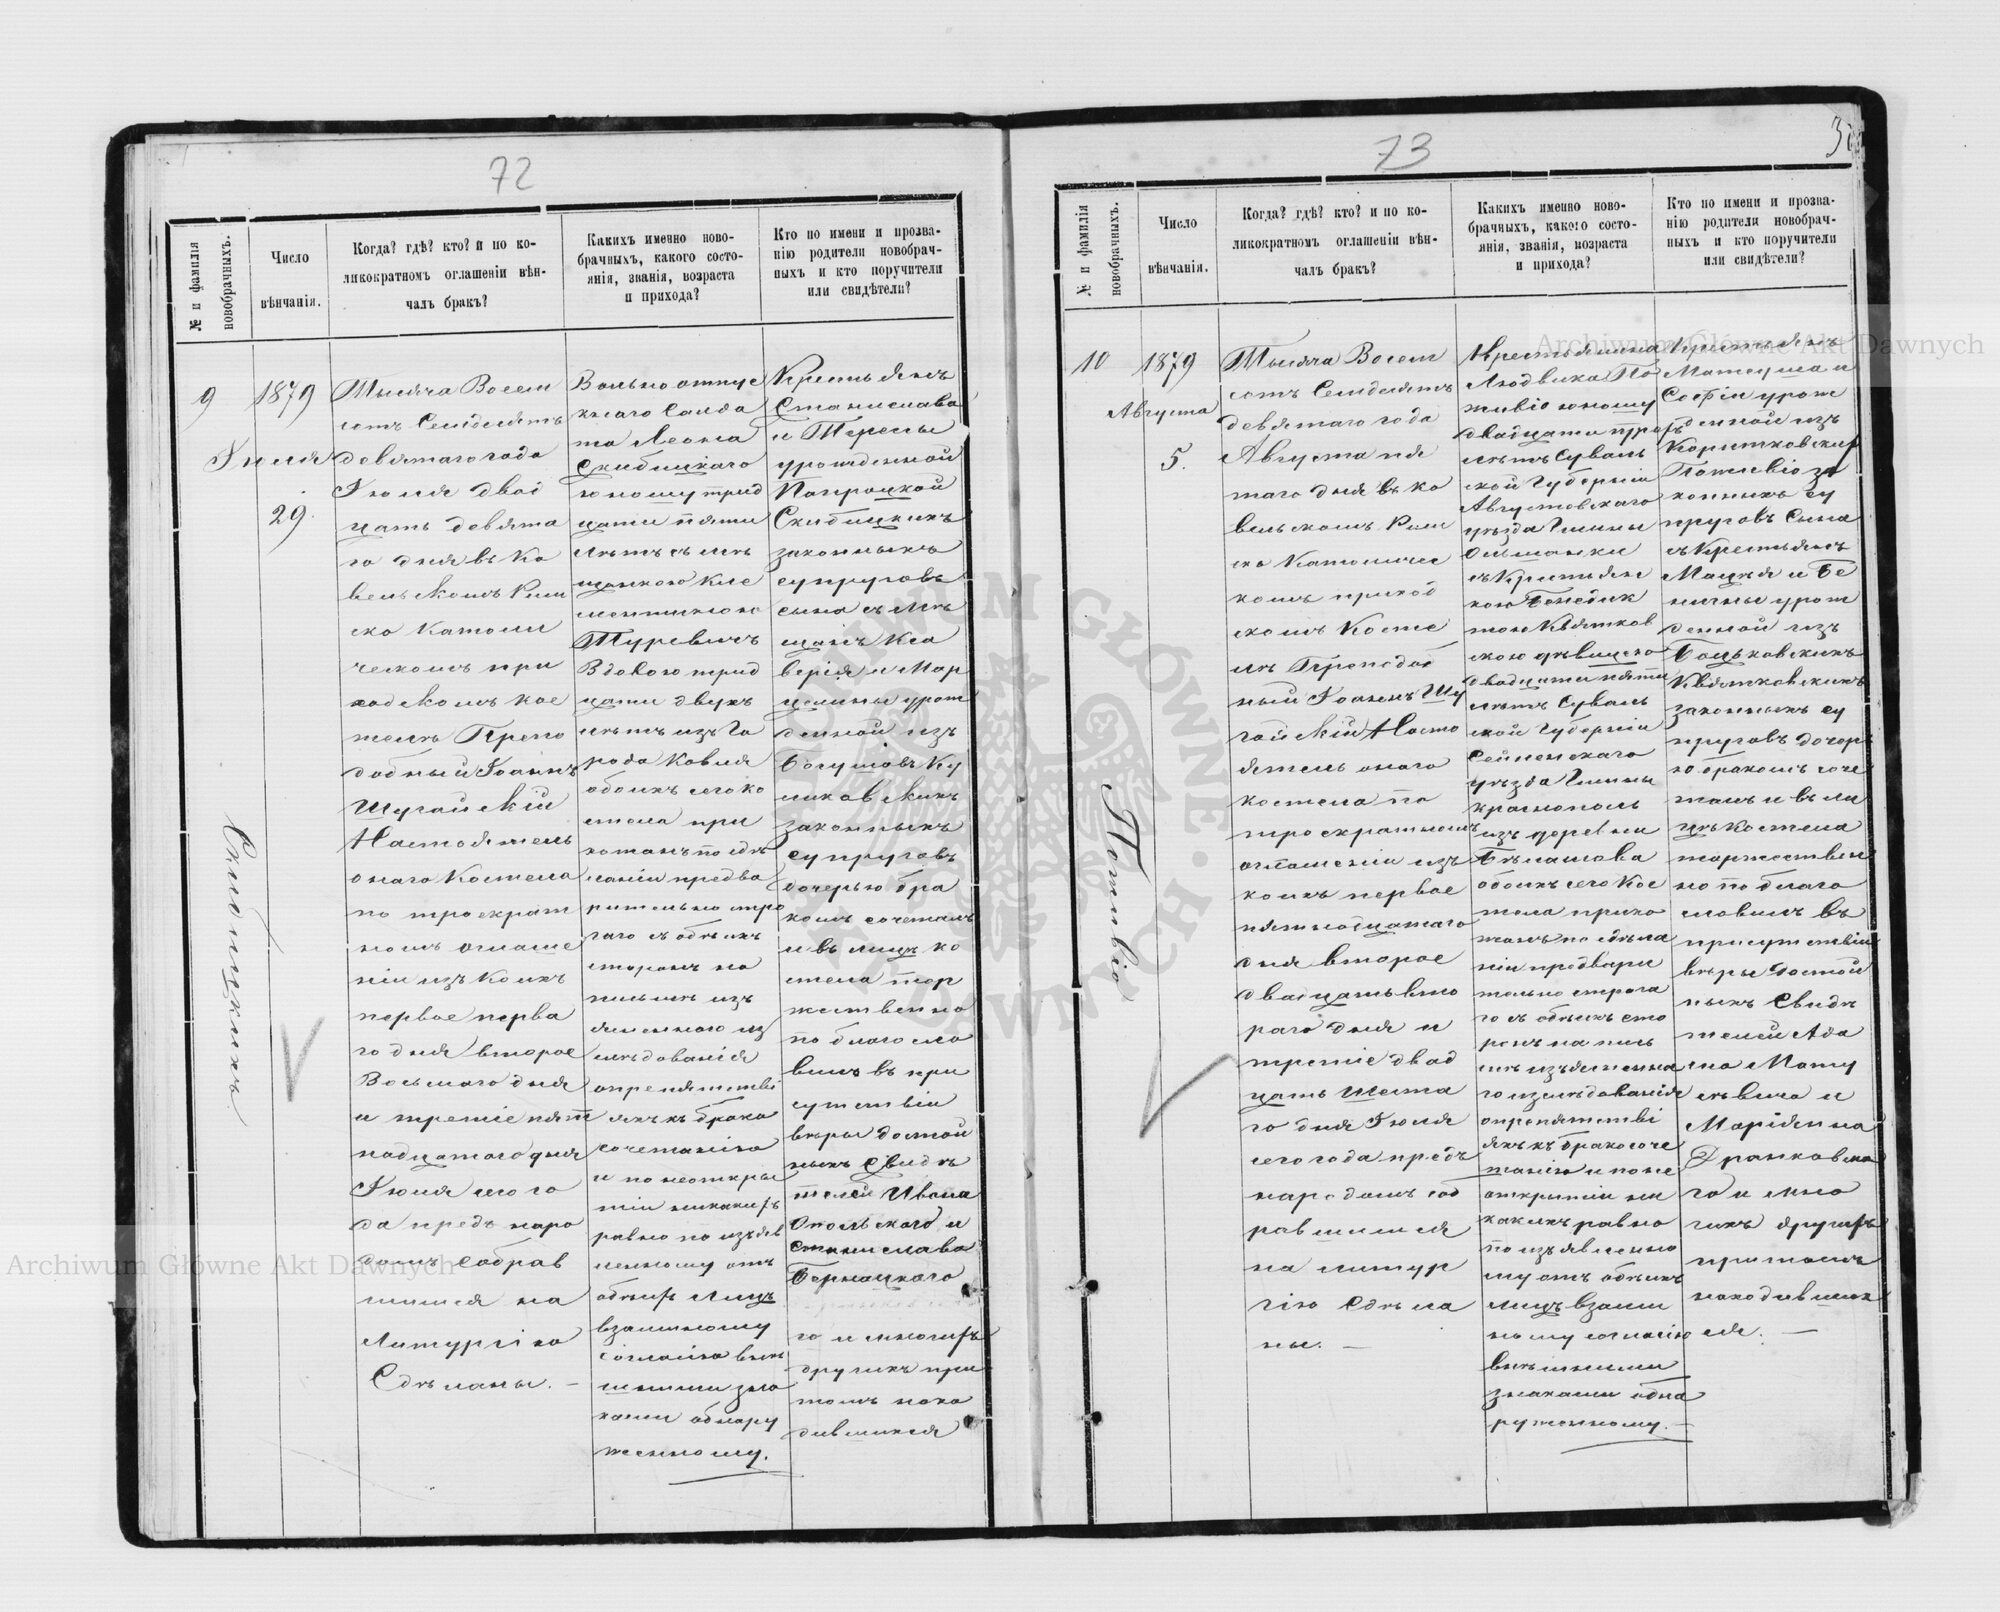 72
№ и фамилія
новобрачныхъ.
Число
вѣнчанія.
Когда? гдѣ? кто? и по ко-
ликократномъ оглашеніи вѣн-
чалъ бракъ?
Какихъ именно ново-
брачныхъ, какого состо-
янія, званія, возраста
и прихода?
Кто по имени и прозва-
нію родители новобрач-
ныхъ и кто поручители
или свидѣтели?
9
Скибицкихъ
1879
Іюля
29.
Тысяча Восем
сотъ Семдесятъ
девятаго года
Іюля двад
цать девята
го дня въ Ко
вельскомъ Рим
ско Католи
ческомъ при
ходскомъ кос
телѣ Препо
добный Іоаннъ
Шугайскій
Настоятель
онаго Костела
по троекрат
номъ оглаше
ніи изъ коихъ
первое перва
го дня второе
Восьмого дня
и третіе пят
надцатого дня
Іюля сего го
да предъ наро
домъ собрав
шимся на
Литургію
Сдѣланы. –
Вольноотпус
кнаго Солда
та Леона
Скибицкаго
юношу трид
цати пяти
лѣтъ съ мѣ
щанкою Кле
ментиною
Туревичъ
Вдовою трид
цати двухъ
лѣтъ изъ Го
рода Ковля
обоихъ сего ко
стела при
хожанъ по сдѣ
ланіи предва
рительно стро
гаго съ обѣихъ
сторонъ на
письмѣ изъ
ясненного из
слѣдованія
о препятстві
яхъ къ брако
сочетанію
и по неоткры
тіи никакихъ
равно по изъяв
ленному отъ
обѣихъ лицъ
взаимному
согласію внѣ
шними зна
ками обнару
женному.
Крестьянъ
Станислава
и Терезы
урожденной
Попроцкой
Скибицкихъ
законныхъ
супруговъ
сына съ мѣ
щанъ Кса
верія и Мар
целины урож
денной изъ
Богушовъ Ку
ликовскихъ
законныхъ
супруговъ
дочерью бра
комъ сочеталъ
и въ лицѣ ко
стела тор
жественно
по благосло
вилъ въ при
сутствіи
вѣры достой
ныхъ Свидѣ
телей Ивана
Опольского и
Станислава
Берноцкого
го и многихъ
другихъ при
томъ нахо
дившихся
73
№ и фамилія
новобрачныхъ.
Число
вѣнчанія.
Когда? гдѣ? кто? и по ко-
ликократномъ оглашеніи вѣн-
чалъ бракъ?
Какихъ именно ново-
брачныхъ, какого состо-
янія, званія, возраста
и прихода?
Кто по имени и прозва-
нію родители новобрач-
ныхъ и кто поручители
или свидѣтели?
10
1879
Августа
5.
Тысяча Восем
сотъ Семдесятъ
девятаго года
Августа пя
таго дня въ Ко
вельскомъ Рим
ско Католичес
комъ приход
скомъ Косте
лѣ Преподоб
ный Іоаннъ Шу
гайскій Насто
ятель онаго
костела по
троекратномъ
оглашеніи изъ
коихъ первое
пятнадцатаго
дня второе
двадцать вто
раго дня и
третіе двад
цать шеста
го дня Іюля
сего года предъ
народомъ соб
равшимся
на литур
гію Сдѣла
ны. –
Крестьянина
Людвика По
двадцати трехъ
лѣтъ Суваль
ской Губерніи
Августовскаго
уѣзда Гмины
Ольшанки
съ Крестьян
кою Бенедик
тою Квятков
скою дѣвицею
двадцати пяти
лѣтъ Суваль
ской Губерніи
Сейненскаго
уѣзда Гмины
Краснополь
изъ деревни
обоихъ сего Кос
тела прихо
жанъ по сдѣла
ніи предвари
тельно строга
го съ обѣихъ сто
ронъ на пись
мѣ изъясненна
го изслѣдованія
о препятстві
яхъ къ бракосоче
танію и по не
открытіи ни
какихъ равно
по изъявленно
му отъ обѣихъ
лицъ взаим
ному согласію
внѣшними
знаками обна
руженному. –
Крестьянъ
Матеуша и
Софіи урож
денной изъ
за
конныхъ су
пруговъ Сына
съ Крестьянъ
Мацѣя и Бе
нигны урож
денной изъ
Квятковскихъ
законныхъ су
пруговъ дочер
ю бракомъ соче
талъ и въ ли
цѣ костела
торжествен
но по благо
словилъ въ
присутствіи
вѣры достой
ныхъ Свидѣ
телей Ада
ма Мату
левича и
Маріяна
го и мно
гихъ другихъ
притомъ
находивших
ся. –
Archiwum Główne Akt Dawnych
Archiwum Główne Akt Dawnych